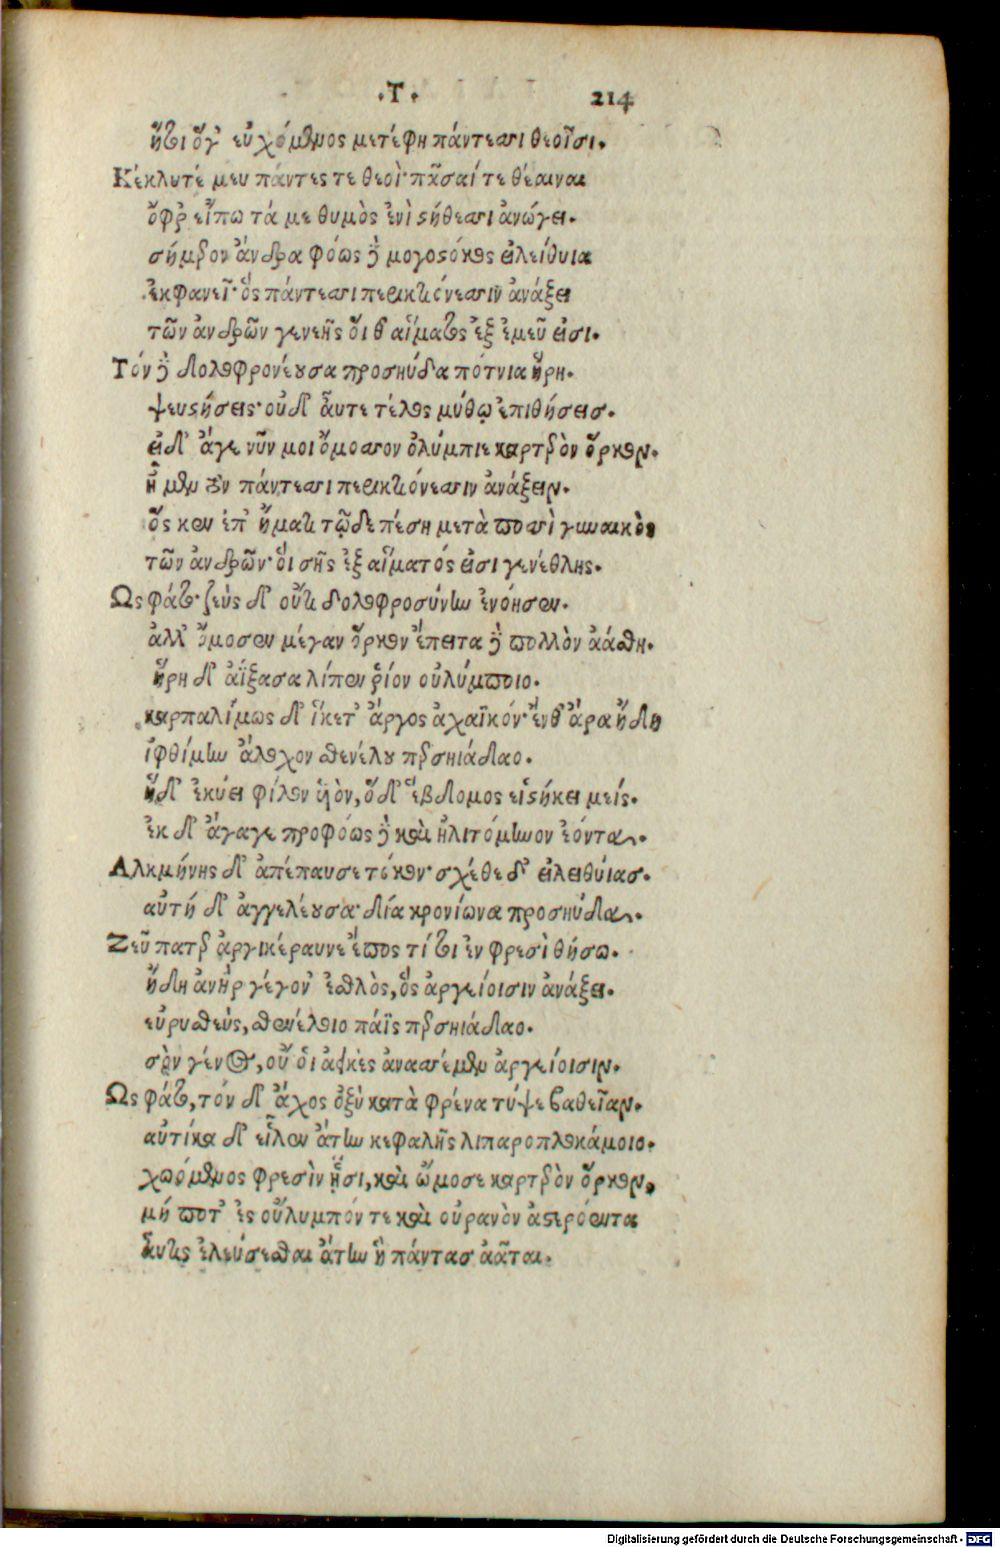 .Τ. 214
ἤτοι ὅγ' εὐχόμενος μετέφη πάντεσσι θεοῖσι.
Κέκλυτέ μευ πάντες τε θεοὶ· πᾶσαί τε θέαιναι
ὄφρ' εἴπω τά με θυμὸς ἐνὶ στήθεσσι ἀνώγει.
σήμερον ἄνδρα φόως δὲ μογοστόκος εἰλείθυια
ἐκφανεῖ· ὃς πάντεσσι περικτιόνεσσιν ἀνάξει
τῶν ἀνδρῶν γενεῆς οἵ θ' αἵματος ἐξ ἐμεῦ εἰσι.
Τόν δὲ δολοφρονέουσα προσηύδα πότνια ἥρη.
ψευστήσεις· οὐδ' αὖτε τέλος μύθῳ ἐπιθήσεισ.
εἰ δ' ἄγε νῦν μοι ὄμοσσον ὀλύμπιε καρτερὸν ὅρκον.
ἦ μὲν τὸν πάντεσσι περικτιόνεσσιν ἀνάξειν.
ὅς κεν ἐπ' ἤματι τῷδε πέσῃ μετὰ ποσσὶ γυναικὸς
τῶν ἀνδρῶν· οἱ σῆς ἐξ αἵματός εἰσι γενέθλης.
Ως φάτο· ζεὺς δ' οὔτι δολοφροσύνην ἐνόησεν.
ἀλλ' ὄμοσεν μέγαν ὅρκον ἔπειτα δὲ πολλὸν ἀάσθη.
ἥρη δ' ἀΐξασα λίπεν ῥίον οὐλύμποιο.
καρπαλίμως δ' ἵκετ' ἄργος ἀχαϊκόν· ἔνθ' ἄρα ἤδη
ἰφθίμην ἄλοχον σθενέλου περσηιάδαο.
ἣ δ' ἐκύει φίλον υἱὸν, ὅ δ' ἕβδομος εἱστήκει μείς.
ἐκ δ' ἄγαγε προφόως δὲ καὶ ἠλιτόμηνον ἐόντα.
Αλκμήνης δ' ἀπέπαυσε τόκον· σχέθε δ' εἰλειθύιασ.
αὐτή δ' ἀγγελέουσα· δία κρονίωνα προσηύδα.
Ζεῦ πατὲρ ἀργικέραυνε ἔπος τί τοι ἐν φρεσὶ θήσω.
ἤδη ἀνὴρ γέγον' ἐσθλὸς, ὃς ἀργείοισιν ἀνάξει.
εὐρυσθεὺς, σθενέλοιο πάϊς περσηιάδαο.
σὸν γένος, οὔ οἱ ἀεικὲς ἀνασσέμεν ἀργείοισιν.
Ως φάτο, τόν δ' ἄχος ὀξὺ κατὰ φρένα τύψε βαθεῖαν.
αὐτίκα δ' εἷλεν ἄτην κεφαλῆς λιπαροπλοκάμοιο.
χωόμενος φρεσὶν ᾗσι, καὶ ὤμοσε καρτερὸν ὅρκον,
μή ποτ' ἐς οὔλυμπόν τε καὶ οὐρανὸν ἀστερόεντα
αὖτις ἐλεύσεσθαι ἄτην ἣ πάντασ ἀᾶται.
Digitalisierung gefördert durch die Deutsche Forschungsgemeinschaft - DFG